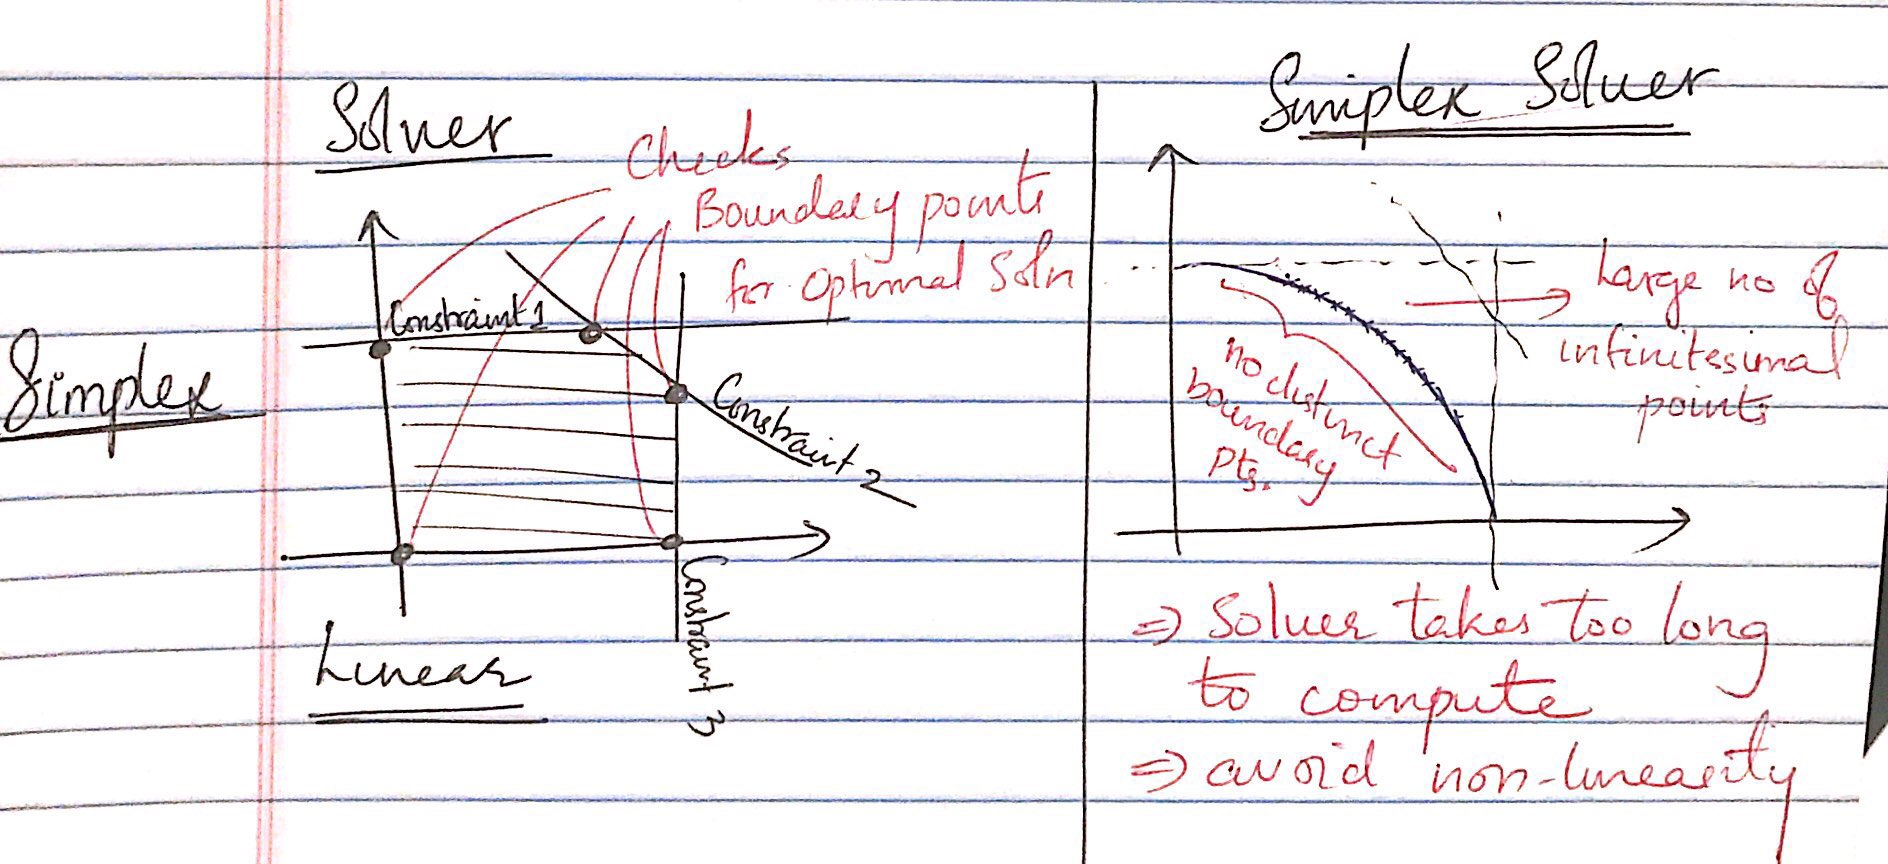 Solver
Checks
Boundary points
for Optimal Soln
Constraint 1
Simplex
Constraint 2
Constraint 3
Linear
Simplex Solver
Large no of
infinitessimal
points
no distinct
boundary
pts.
=> Solver takes too long
to compute
=> avoid non-linearity